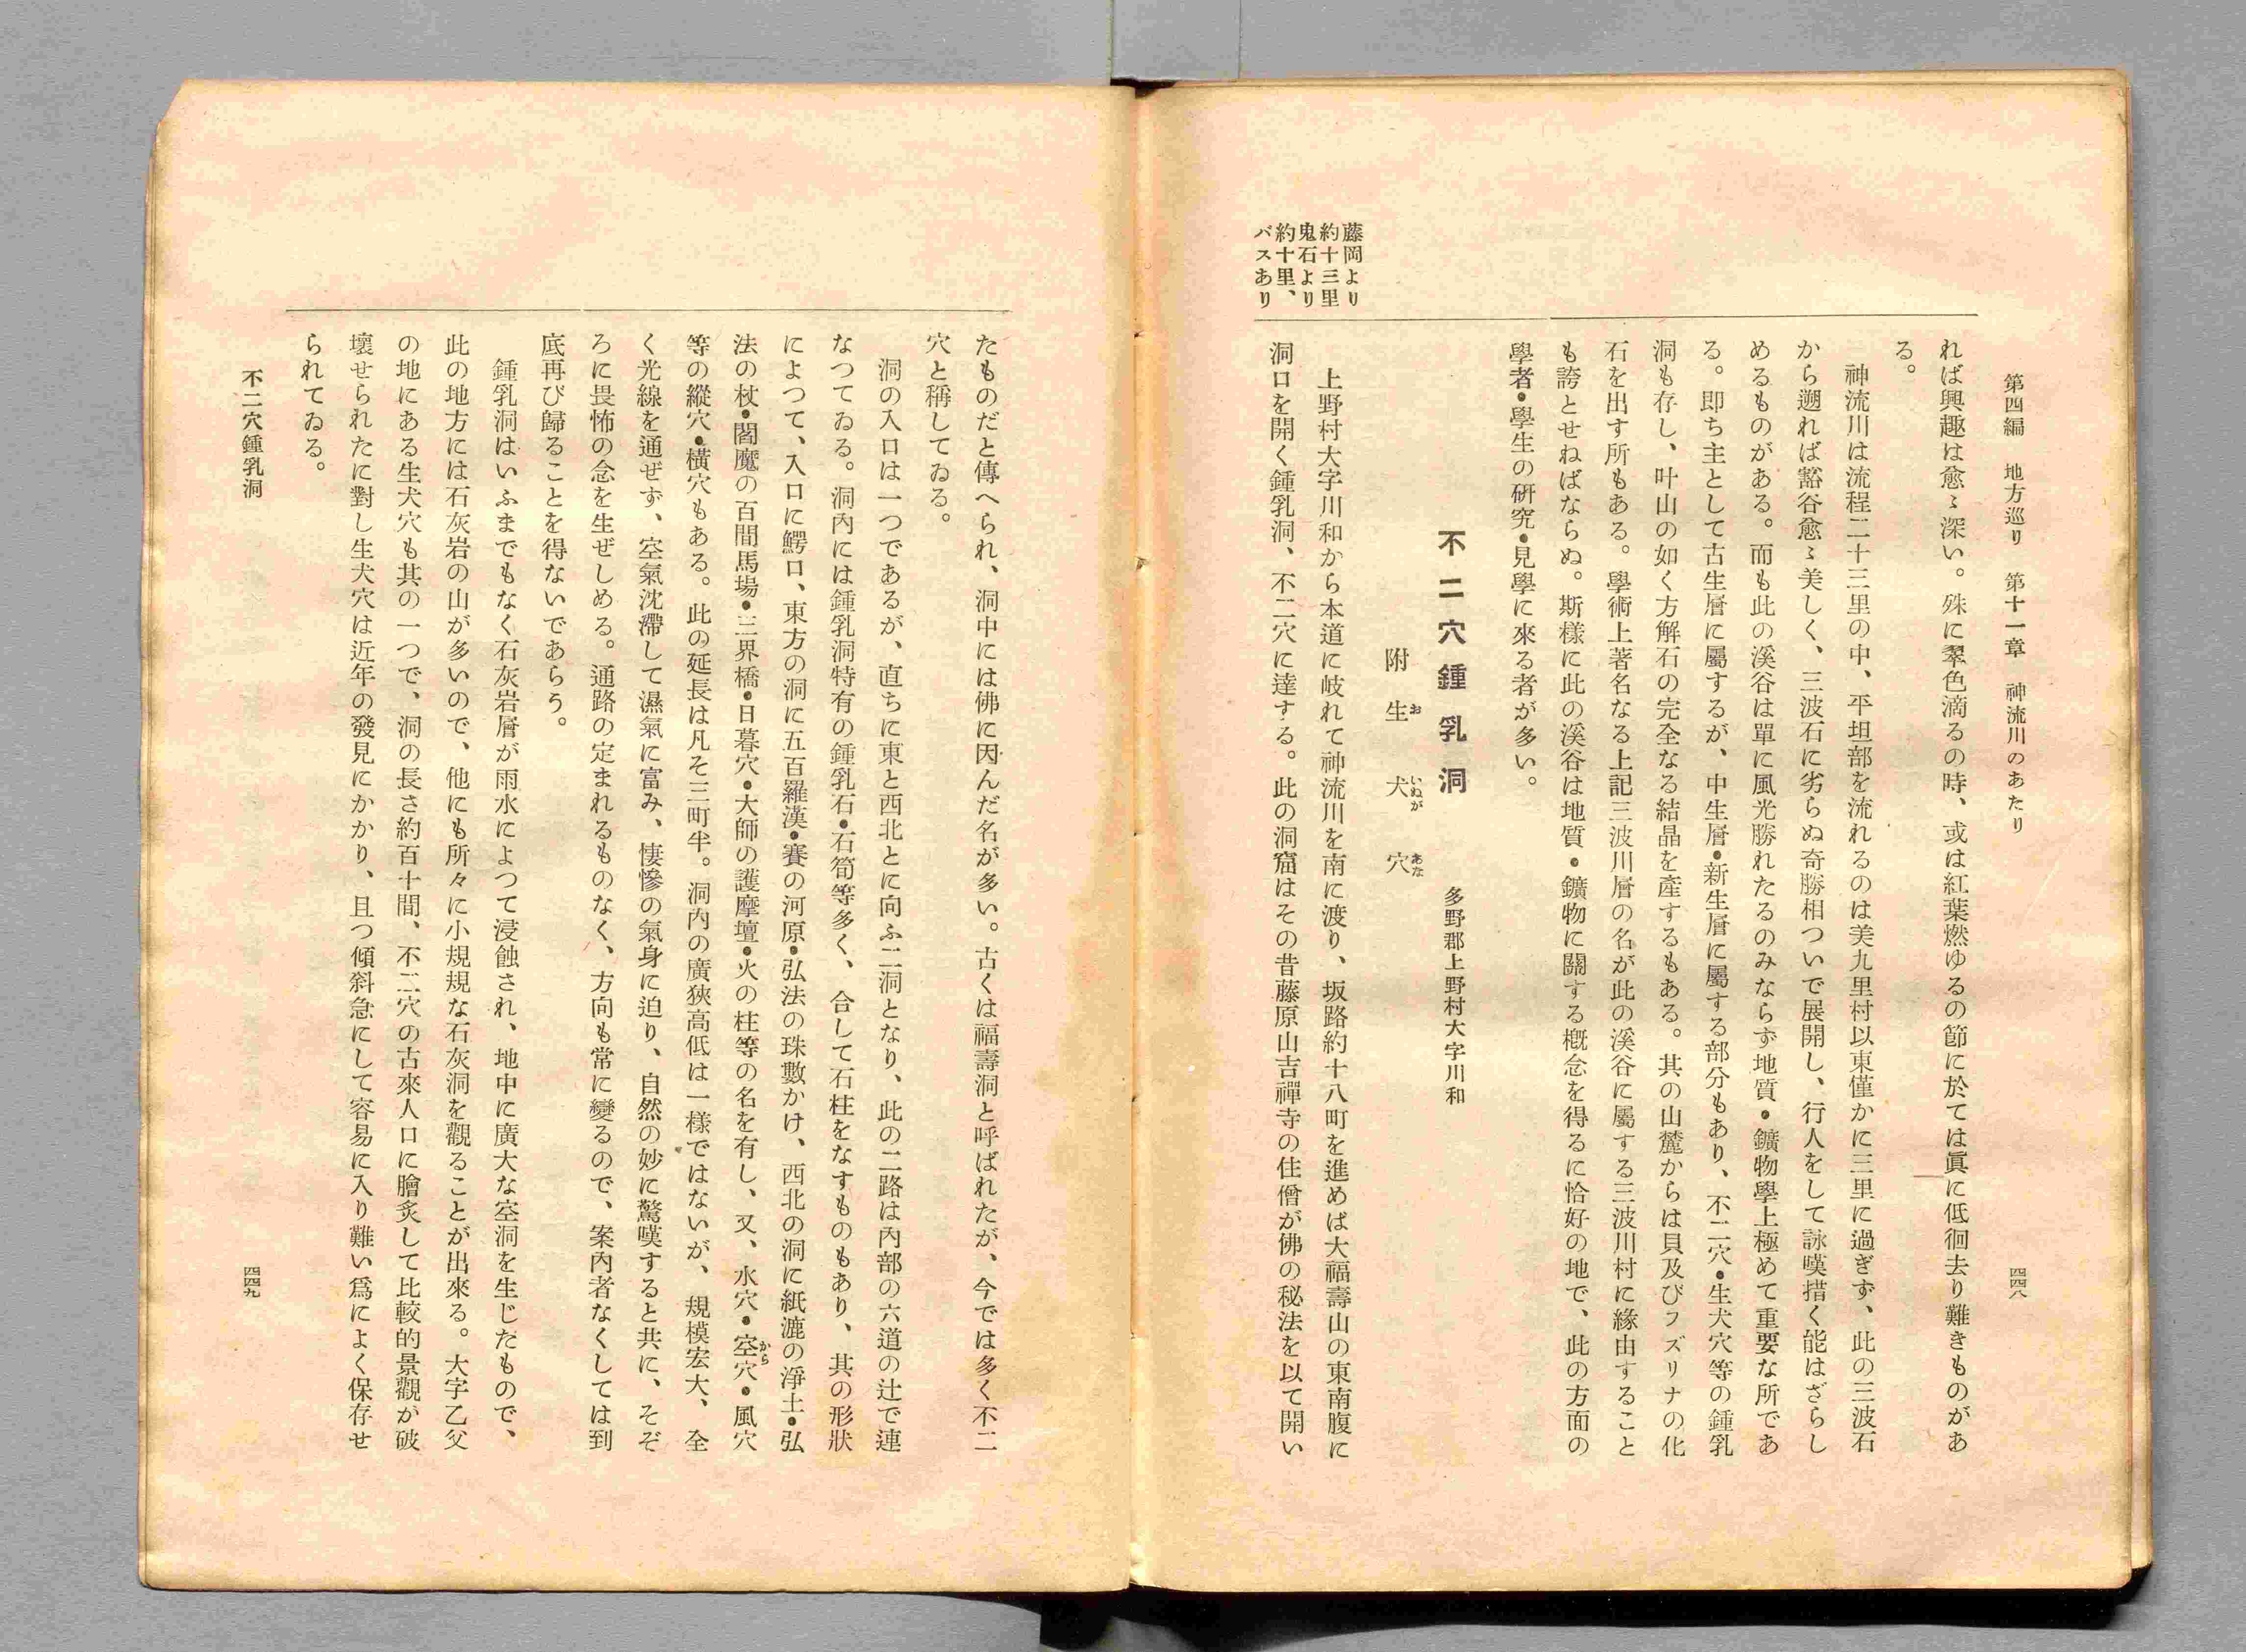 第四編　地方巡り　第十一章　神流川のあたり
四四八
れば興趣は愈〻深い。殊に翠色滴るの時、或は紅葉燃ゆるの節に於ては眞に低徊去り難きものがあ
る。
神流川は流程二十三里の中、平坦部を流れるのは美九里村以東僅かに三里に過ぎず、此の三波石
から遡れば谿谷愈〻美しく、三波石に劣らぬ奇勝相ついで展開し、行人をして詠嘆措く能はざらし
めるものがある。而も此の溪谷は單に風光勝れたるのみならず地質・鑛物學上極めて重要な所であ
る。即ち主として古生層に屬するが、中生層・新生層に屬する部分もあり、不二穴・生犬穴等の鍾乳
洞も存し、叶山の如く方解石の完全なる結晶を産するもある。其の山麓からは貝及びフズリナの化
石を出す所もある。學術上著名なる上記三波川層の名が此の溪谷に屬する三波川村に緣由すること
も誇とせねばならぬ。斯樣に此の溪谷は地質・鑛物に關する概念を得るに恰好の地で、此の方面の
學者・學生の研究・見學に來る者が多い。
不二穴鍾乳洞　多野郡上野村大字川和
附　生犬穴
お　いぬが　あな
藤岡より
約十三里
鬼石より
約十里、
バスあり
上野村大字川和から本道に岐れて神流川を南に渡り、坂路約十八町を進めば大福壽山の東南腹に
洞口を開く鍾乳洞、不二穴に達する。此の洞窟はその昔藤原山吉禪寺の住僧が佛の秘法を以て開い
たものだと傳へられ、洞中には佛に因んだ名が多い。古くは福壽洞と呼ばれたが、今では多く不二
穴と稱してゐる。
洞の入口は一つであるが、直ちに東と西北とに向ふ二洞となり、此の二路は內部の六道の辻で連
なつてゐる。洞內には鍾乳洞特有の鍾乳石・石筍等多く、合して石柱をなすものもあり、其の形狀
によつて、入口に鰐口、東方の洞に五百羅漢・賽の河原・弘法の珠數かけ、西北の洞に紙漉の淨土・弘
法の杖・閻魔の百間馬場・三界橋・日暮穴・大師の護摩壇・火の柱等の名を有し、又、水穴・空穴・風穴
から
等の縱穴・橫穴もある。此の延長は凡そ三町半。洞內の廣狹高低は一樣ではないが、規模宏大、全
く光線を通ぜず、空氣沈滯して濕氣に富み、悽慘の氣身に迫り、自然の妙に驚嘆すると共に、そぞ
ろに畏怖の念を生ぜしめる。通路の定まれるものなく、方向も常に變るので、案內者なくしては到
底再び歸ることを得ないであらう。
鍾乳洞はいふまでもなく石灰岩層が雨水によつて浸蝕され、地中に廣大な空洞を生じたもので、
此の地方には石灰岩の山が多いので、他にも所々に小規規な石灰洞を觀ることが出來る。大字乙父
の地にある生犬穴も其の一つで、洞の長さ約百十間、不二穴の古來人口に膾炙して比較的景觀が破
壞せられたに對し生犬穴は近年の發見にかかり、且つ傾斜急にして容易に入り難い爲によく保存せ
られてゐる。
不二穴鍾乳洞
四四九